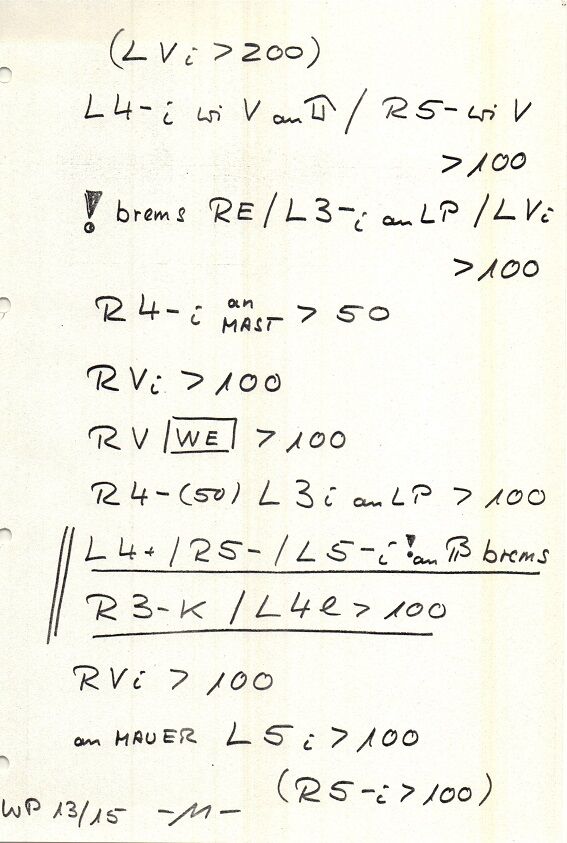 (L Vi > 200)
L4-i wi V an / R5- wi V
> 100
! brems RE / L3-i an LP / LVi
> 100
R 4-i an MAST > 50
RVi > 100
RV |WE| > 100
R4-(50) L3i an LP > 100
L4+ / R5- / L5-i ! an brems
R3-K / L4l > 100
RVi > 100
an MAUER L5i > 100
(R5-i > 100)
WP 13/15 -11-